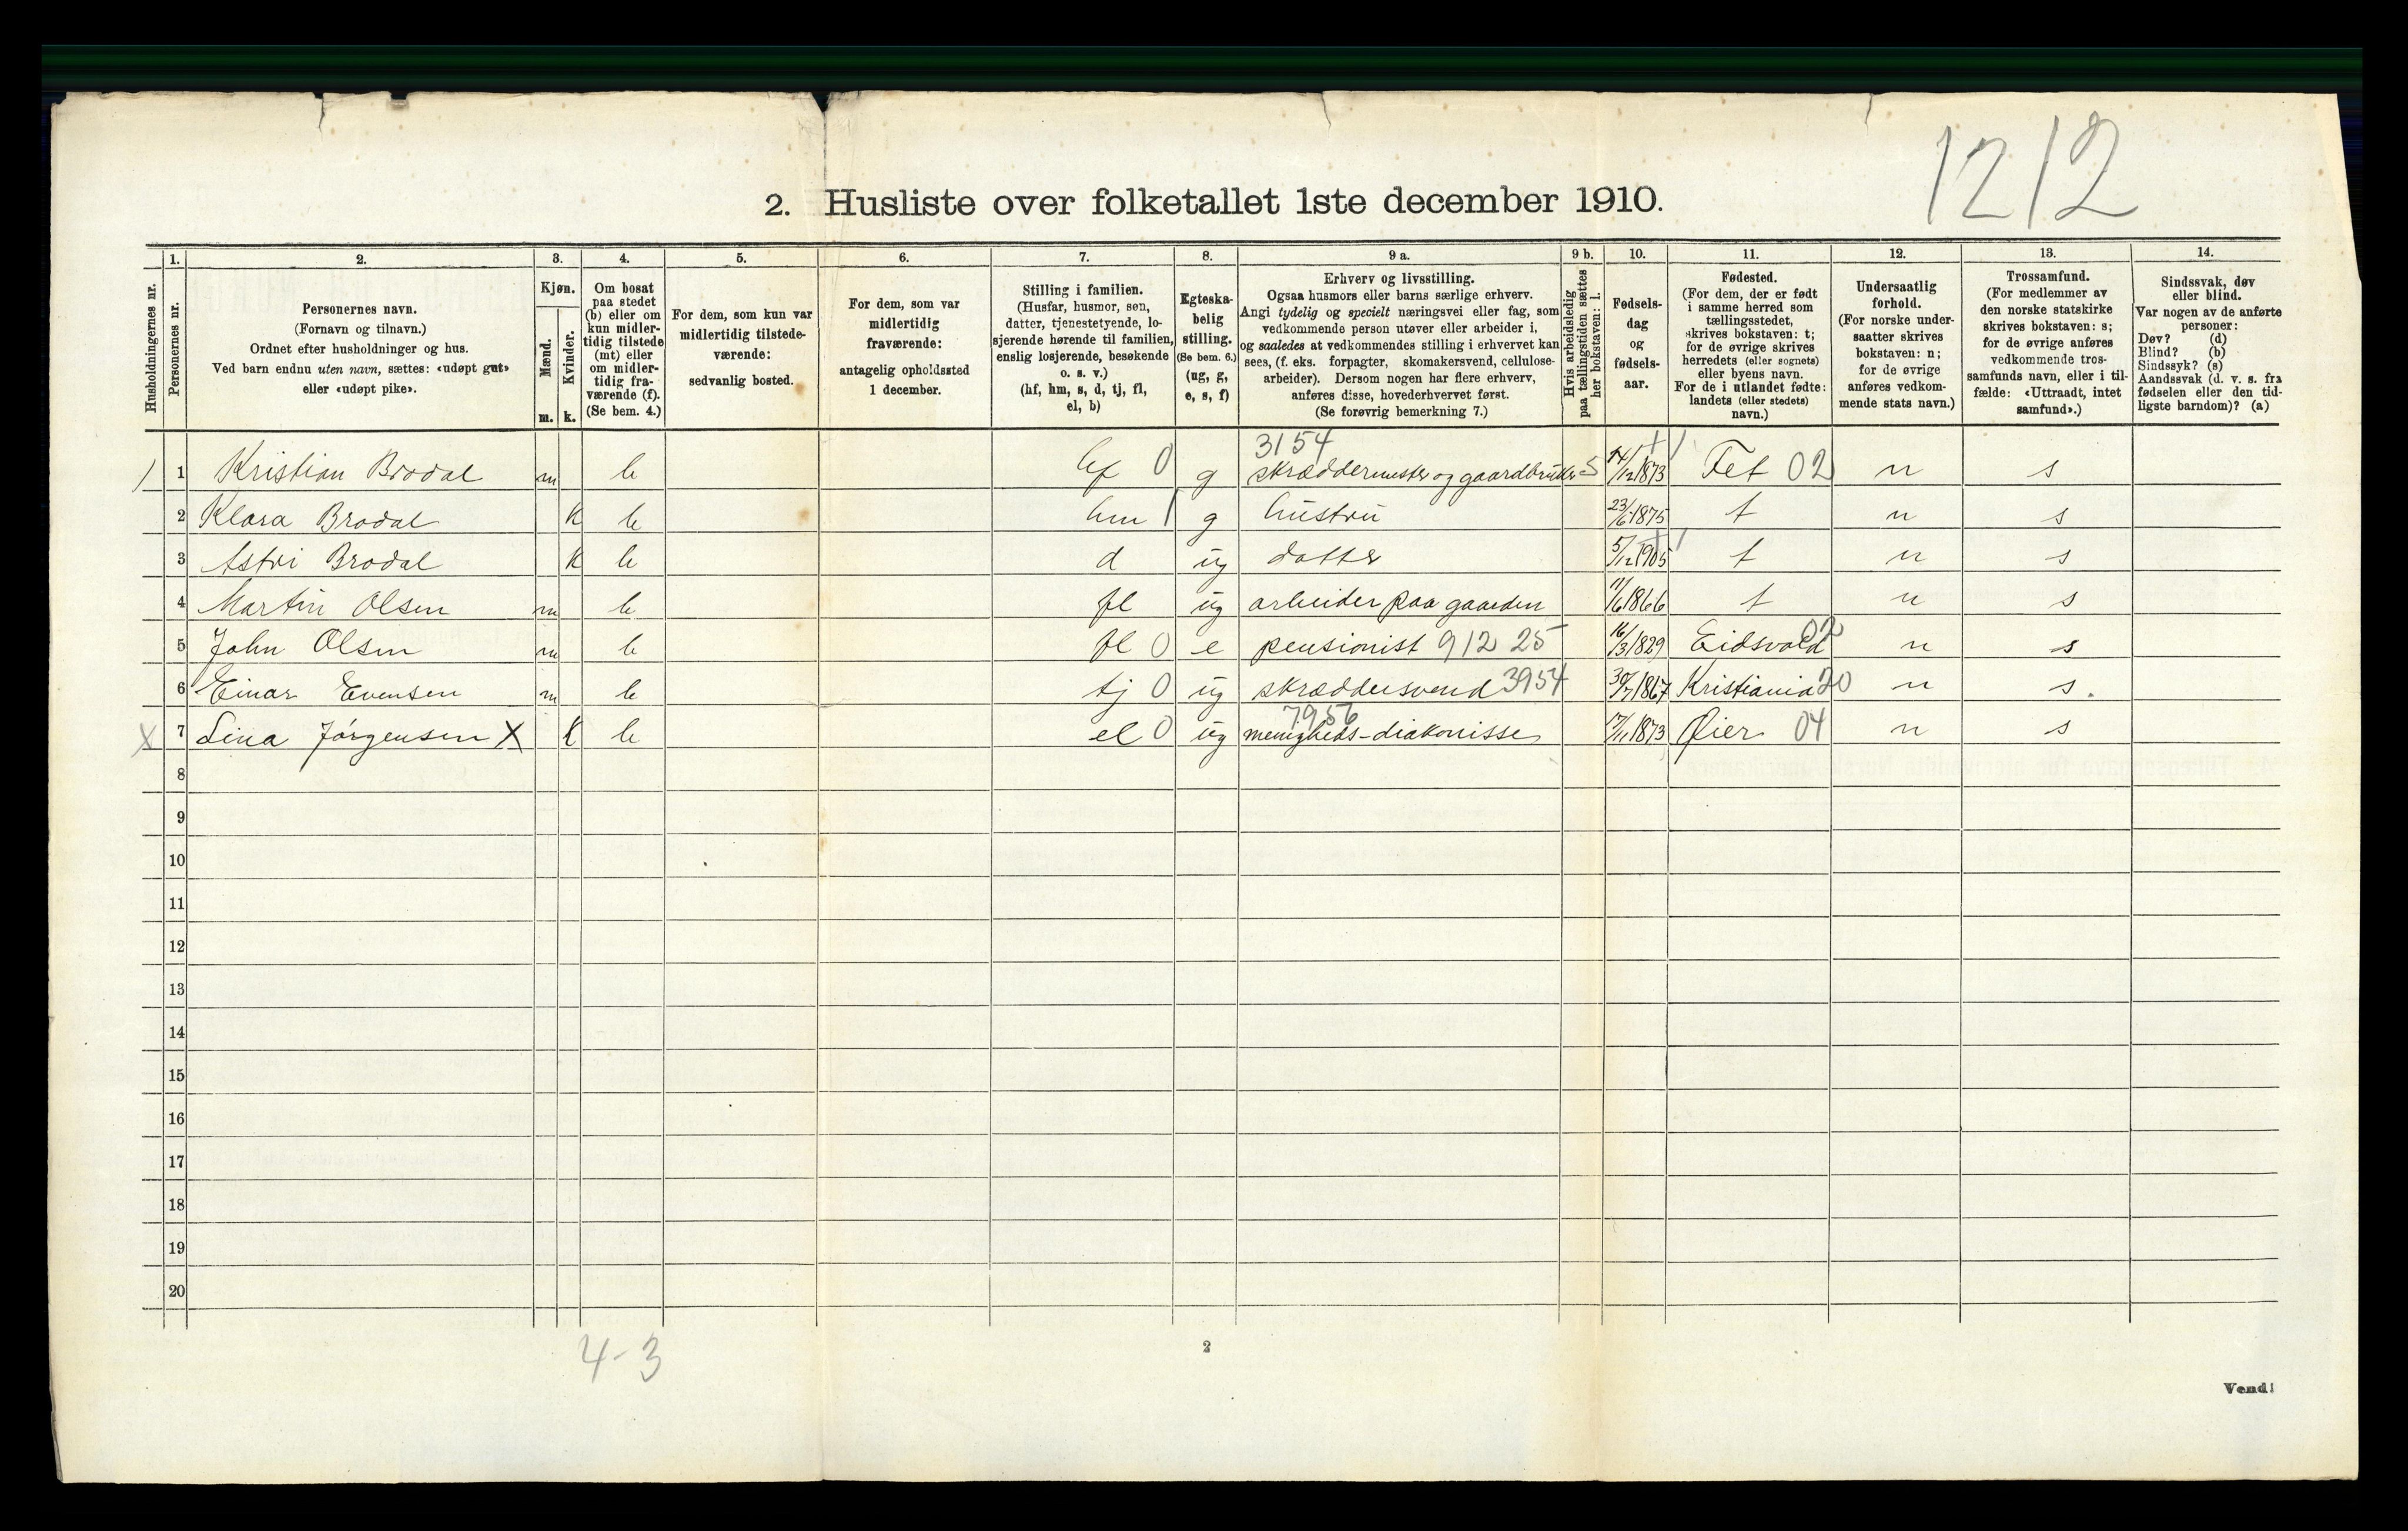 1212
2. Husliste over folketallet 1ste december 1910.
Husholdningernes nr.
1. Personernes nr.
2. Personernes navn. (Fornavn og tilnavn.) Ordnet efter husholdninger og hus. Ved barn endnu uten navn, sættes: «udøpt gut» eller «udøpt pike».
3. Kjøn. Mænd. m. Kvinder. k.
4. Om bosat paa stedet (b) eller om kun midlertidig tilstede (mt) eller om midlertidig fraværende (f). (Se bem. 4.)
5. For dem, som kun var midlertidig tilstedeværende: sedvanlig bosted.
6. For dem, som var midlertidig fraværende: antagelig opholdssted 1 december.
7. Stilling i familien. (Husfar, husmor, søn, datter, tjenestetyende, losjerende hørende til familien, enslig losjerende, besøkende o. s. v.) (hf, hm, s, d, tj, fl, el, b)
8. Egteskabelig stilling. (Se bem. 6.) (ug, g, e, s, f)
9 a. Erhverv og livsstilling. Ogsaa husmors eller barns særlige erhverv. Angi tydelig og specielt næringsvei eller fag, som vedkommende person utøver eller arbeider i, og saaledes at vedkommendes stilling i erhvervet kan sees, (f. eks. forpagter, skomakersvend, cellulosearbeider). Dersom nogen har flere erhverv, anføres disse, hovederhvervet først. (Se forøvrig bemerkning 7.)
9 b. Hvis arbeidsledig paa tællingstiden sættes her bokstaven: l.
10. Fødselsdag og fødselsaar.
11. Fødested. (For dem, der er født i samme herred som tællingsstedet, skrives bokstaven: t; for de øvrige skrives herredets (eller sognets) eller byens navn. For de i utlandet fødte: landets (eller stedets) navn.)
12. Undersaatlig forhold. (For norske undersaatter skrives bokstaven: n; for de øvrige anføres vedkommende stats navn.)
13. Trossamfund. (For medlemmer av den norske statskirke skrives bokstaven: s; for de øvrige anføres vedkommende trossamfunds navn, eller i tilfælde: «Uttraadt, intet samfund».)
14. Sindssvak, døv eller blind. Var nogen av de anførte personer: Døv? (d) Blind? (b) Sindssyk? (s) Aandssvak (d. v. s. fra fødselen eller den tidligste barndom)? (a)
3154
1 Kristian Brodal m b hf 0 g skræddermester og gaardbruker S 14/12 1873 Fet 02 n s
2 Klara Brodal k b hm 1 g hustru 23/6 1875 t n s
3 Astri Brodal k b d ug datter 5/12 1905 t n s
4 Martin Olsen m b fl ug arbeider paa gaarden 11/6 1866 t n s
5 John Olsen m b fl 0 e pensionist 912 25 16/3 1829 Eidsvold 02 n s
6 Einar Evensen m b tj 0 ug skræddersvend 3954 30/7 1867 Kristiania 20 n s.
7956
X 7 Lina Jørgensen X k b el 0 ug menigheds-diakonisse 17/11 1873 Øier 04 n s
8
9
10
11
12
13
14
15
16
17
18
19
20
4-3
2
Vend!